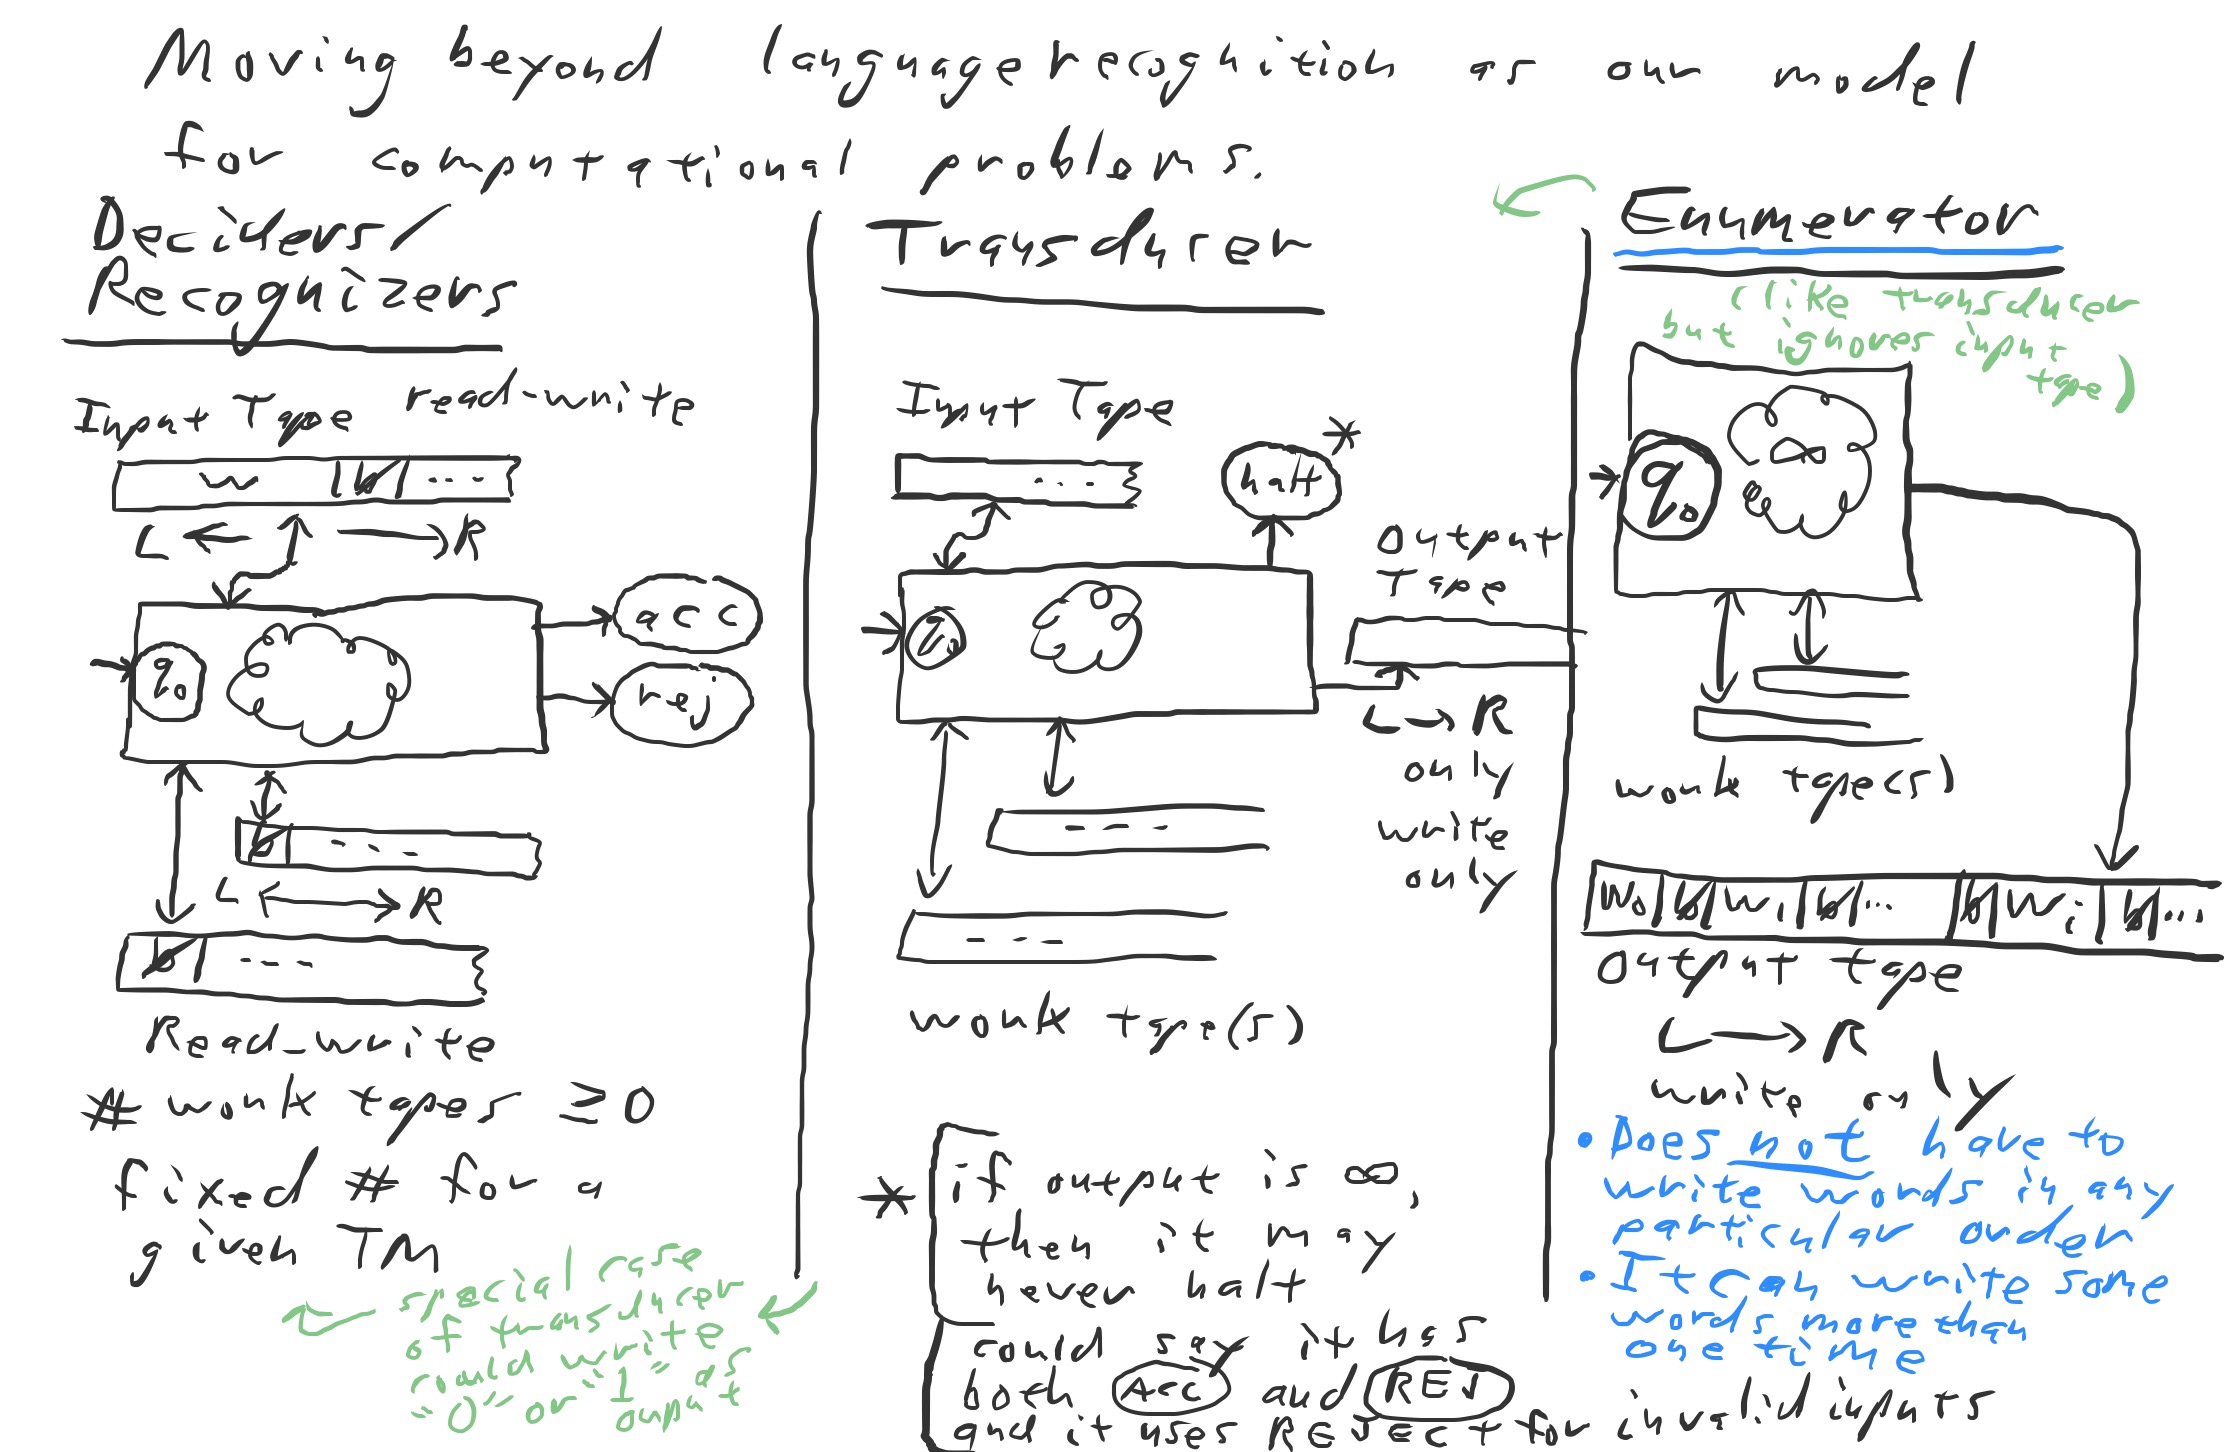 Moving beyond language recognition as our model
for computational problems.
Deciders/
Recognizers
Input Tape read-write
w b ...
L R
q0
acc
rej
b ...
L R
b ...
Read-write
# work tapes ≥ 0
fixed # for a
given TM
special case
of transducer
could write
"0" or "1" as
ouput
Transducer
Input Tape
...
halt *
q0
Output
Tape
L → R
only
write
only
...
...
work tape(s)
* if output is ∞,
then it may
never halt
could say it has
both Acc and REJ
and it uses REJECT for invalid inputs
Enumerator
(like transducer
but ignores input
tape)
q0
work tape(s)
w0 b w1 b ... b wi b ...
output tape
L → R
write only
• Does not have to
write words in any
particular order
• It can write some
words more than
one time